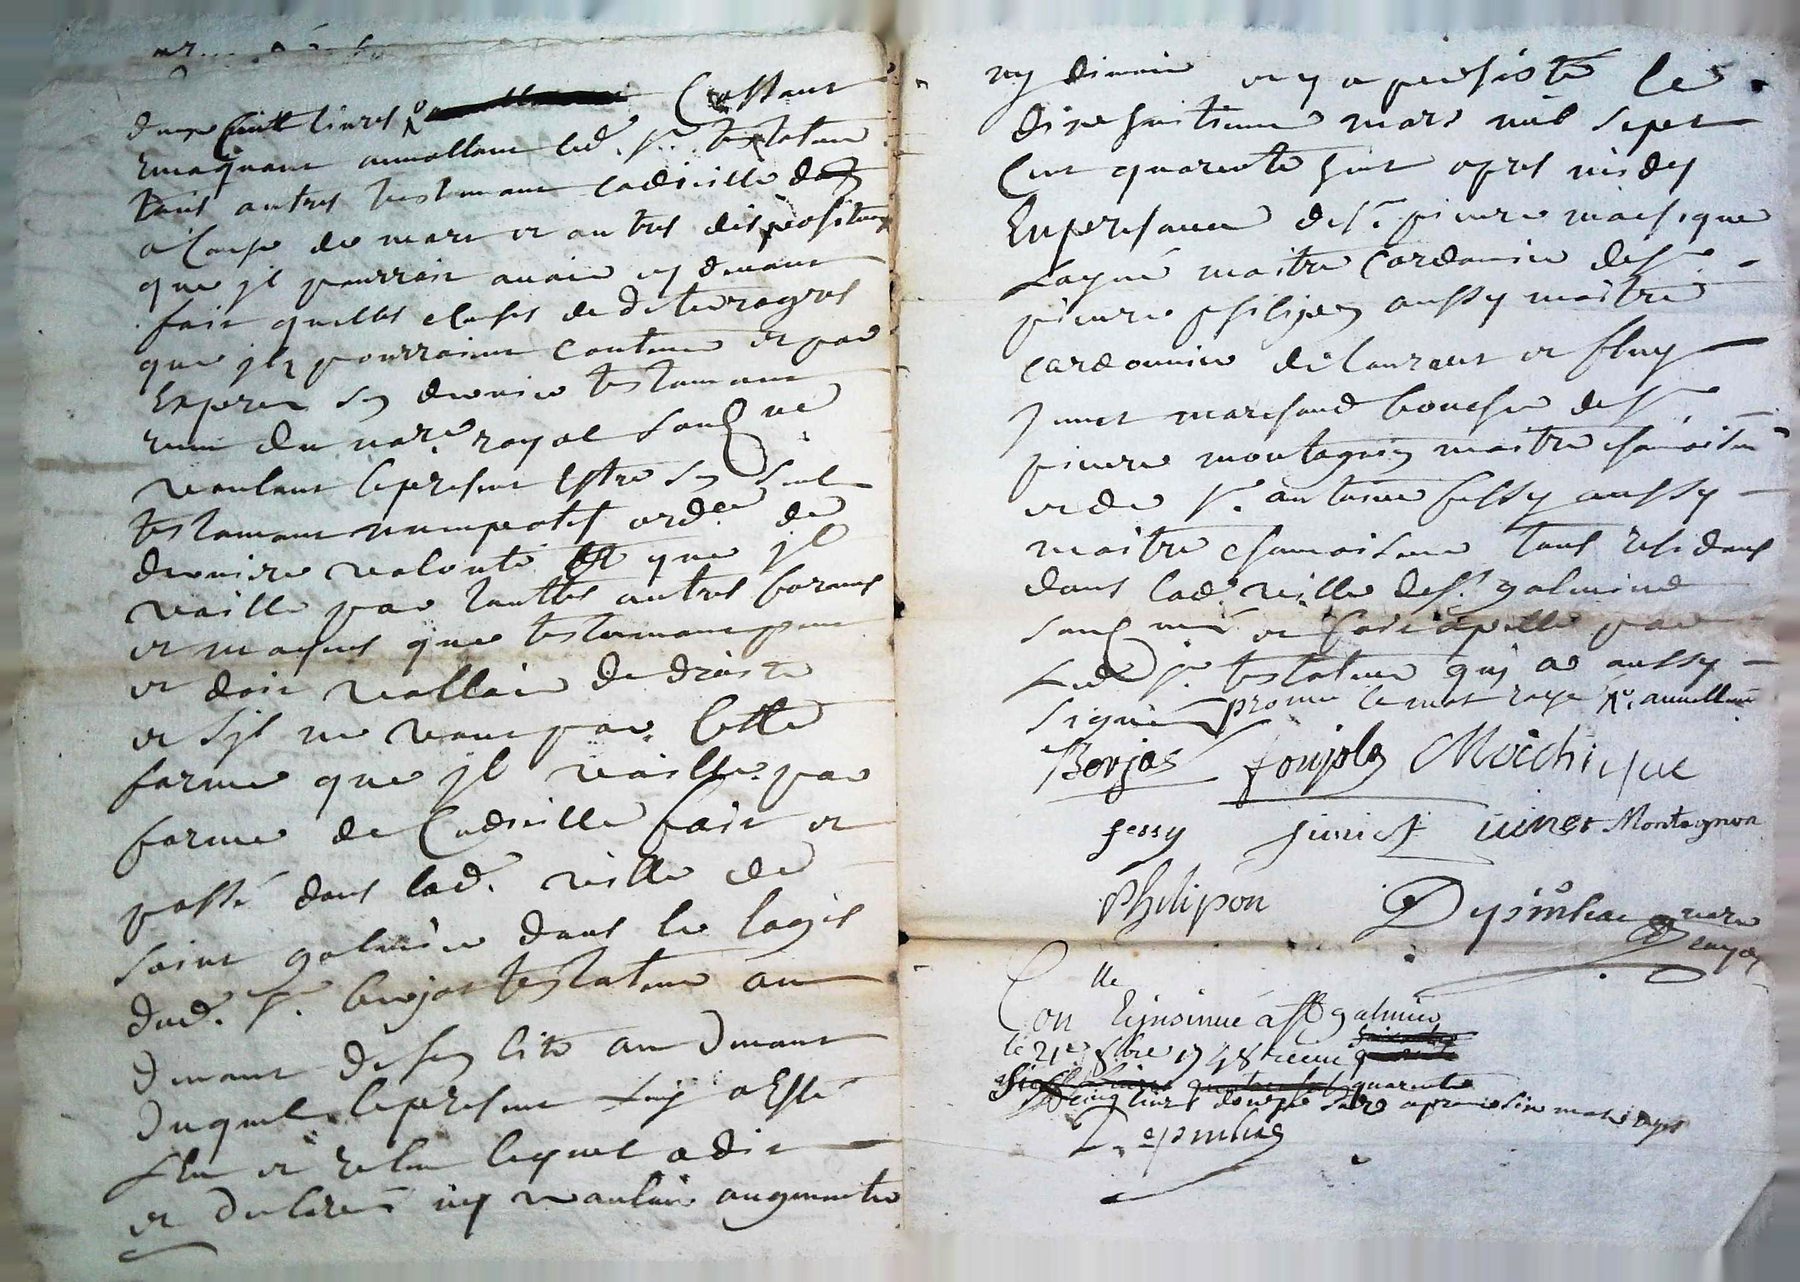 deux cent livres Cassant
Revoquant annullant led. sr. testateur
tous autres testamant codicille don
a cause de mort et autres dispositions
que jl pourroit avoir cy devant
fait quelles clauses de deterogros
que jls pourroient contenir et par
Exprez son dernier testamant
reçu du nore. royal sousné
voulant le present Estre son seul
testamant nuncupatif ordre. de
derniere volonté et que jl
vaille par touttes autres formes
et moyens que testamant peut
et doit valloir de droit
et sjl ne vaut par cette
forme que jl vaille par
forme de Codicille fait et
passé dans lad. ville de
saint galmier dans le logis
dud. sr. boujas testateur au
devant de son lit au devant
duquel le present Luy a Esté
Leu et relu lequel a dit
et declaré ny vouloir augmenter
ny diminuer et y a persisté le
dixhuitieme mars mil sept
Cent quarente huit apres midy
En presance de sr. pierre machique
Layné maitre cordonnier de sr.
pierre philipon aussy maitre
cordonnier de laurent et fleury
junet marchand boucher de sr.
pierre montagnon maitre chamoiseur
et de sr. antoine fessy aussy
maitre chamoiseur tous residans
dans lad. ville de st. galmier
sousnés et fait apellé par
Led. sr. testateur qui a aussy
signé prouvé le mot rayé annullant
Boujas foujols Mochique
fessy junet junet Montagnon
Philipon Depinhac nore
royal
Con lle
Et jnsinué a st galmier
le 21e. 8bre 1748 receu
quarente
cinq livres douze sols
Depinhac